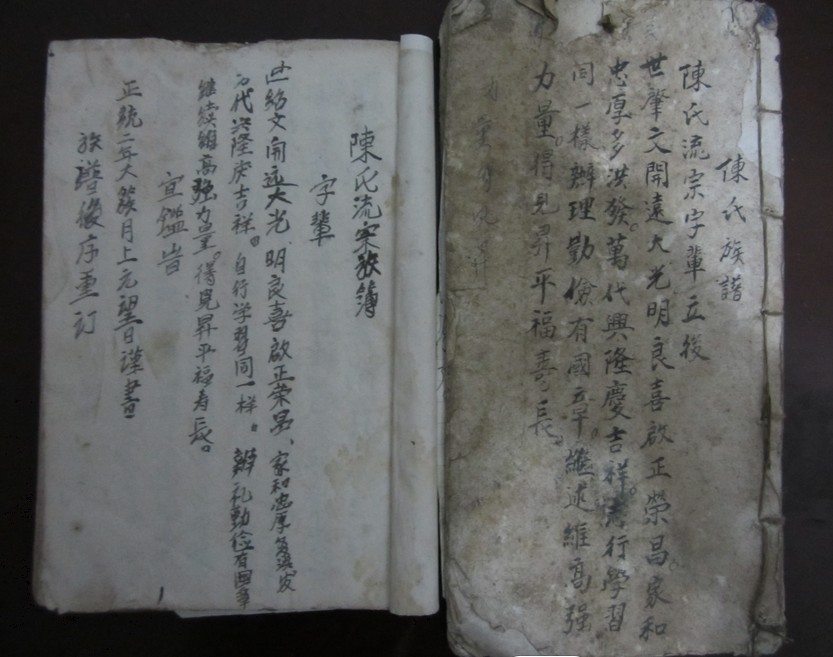 陳氏族譜
陳氏流宗字輩立後
世肇文開遠大光明良喜啟正榮昌。家和
忠厚多洪發。萬代興隆慶吉祥。行學習
同一樣辦理勤儉有國章。繼述維高强
力量。得見昇平福喜長。
陳氏流宗族簿
字輩
世紹文開远大光明良喜啟正荣昌、家和忠厚多洪发
万代兴隆庆吉祥。自行学習同一样。辦礼勤俭有国章
继续維高强力量。得見昇平福寿長。
宣鑑皆
正統二年大簇月上元望日謹書
族譜後序重訂